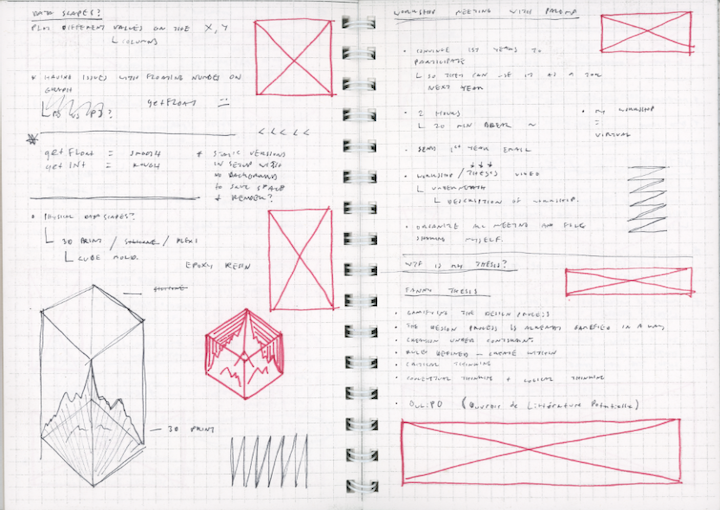 DATA SCAPES?
PLOT DIFFERENT VALUES ON THE X, Y
COLUMNS
* HAVING ISSUES WITH FLOATING NUMBER ON
GRAPH
getFloat
getFloat = SMOOTH
getInt = ROUGH
* STATIC VERSIONS
IN SETUP WITH
NO BACKGROUND
TO SAVE SPACE
& RENDER?
PHYSICAL DATA SCAPES?
3D PRINT / SILICONE / PLEXI
CUBE MOLD
EPOXY RESIN
3D PRINT
WORKSHOP MEETING WITH
CONVINCE 1ST YEARS TO
PARTICIPATE
SO THEY CAN USE IT AS A TOOL
NEXT YEAR
2 HOURS
20 MIN BREAK ~
MY WORKSHOP
=
VIRTUAL
SEND 1ST YEAR EMAIL
WORKSHOP / THESIS VIDEO
UNDERNEATH
DESCRIPTION OF WORKSHOP.
ORGANIZE ALL MEETING AND
MYSELF.
WTF IS MY THESIS?
FUNNY THESIS
GAMIFYING THE DESIGN PROCESS
THE DESIGN PROCESS IS ALREADY GAMIFIED IN A WAY,
CREATION UNDER CONSTRAINTS
RULES DEFINED - CREATE WITHIN
CRITICAL THINKING
CONCEPTUAL THINKING + LOGICAL THINKING
OULIPO (Ouvroir de Littérature Potentielle)